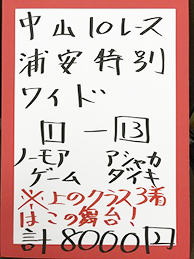 中山10レース
浦安特別
ワイド
1-13
ノーモア アシャカ
ゲーム ダイキ
※上のクラス3着
はこの舞台!
計8000円